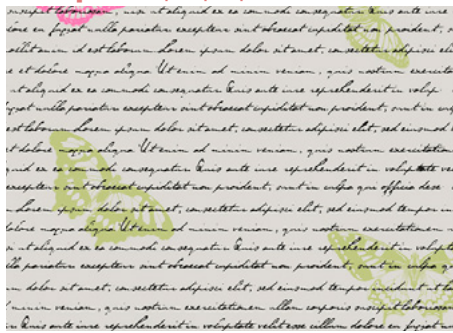 suscipit laboriosam, nisi ut aliquid ex ea commodi consequatur Quis aute iure
dolore eu fugiat nulla pariatur excepteur sint obcaecat cupiditat non proident,
mollit anim id est laborum Lorem ipsum dolor sit amet, consectetur adipisci eli
e et dolore magna aliqua Ut enim ad minim veniam, quis nostrum exercita
ut aliquid ex ea commodi consequatur Quis aute iure reprehenderit in volup
fugiat nulla pariatur excepteur sint obcaecat cupiditat non proident, sunt in cul
est laborum Lorem ipsum dolor sit amet, consectetur adipisci elit, sed eiusmod
t dolore magna aliqua Ut enim ad minim veniam, quis nostrum exercitatio
quid ex ea commodi consequatur Quis aute iure reprehenderit in voluptate ve
excepteur sint obcaecat cupiditat non proident, sunt in culpa qui officia dese
Lorem ipsum dolor sit amet, consectetur adipisci elit, sed eiusmod tempor in
dolore magna aliqua Ut enim ad minim veniam, quis nostrum exercitationem
si ut aliquid ex ea commodi consequatur Quis aute iure reprehenderit in volupta
lla pariatur excepteur sint obcaecat cupiditat non proident, sunt in culpa q
m dolor sit amet, consectetur adipisci elit, sed eiusmod tempor incidunt ut la
minim veniam, quis nostrum exercitationem ullam corporis suscipit laborios
r Quis aute iure reprehenderit in voluptate velit esse cillum dolore eu fugiat nu